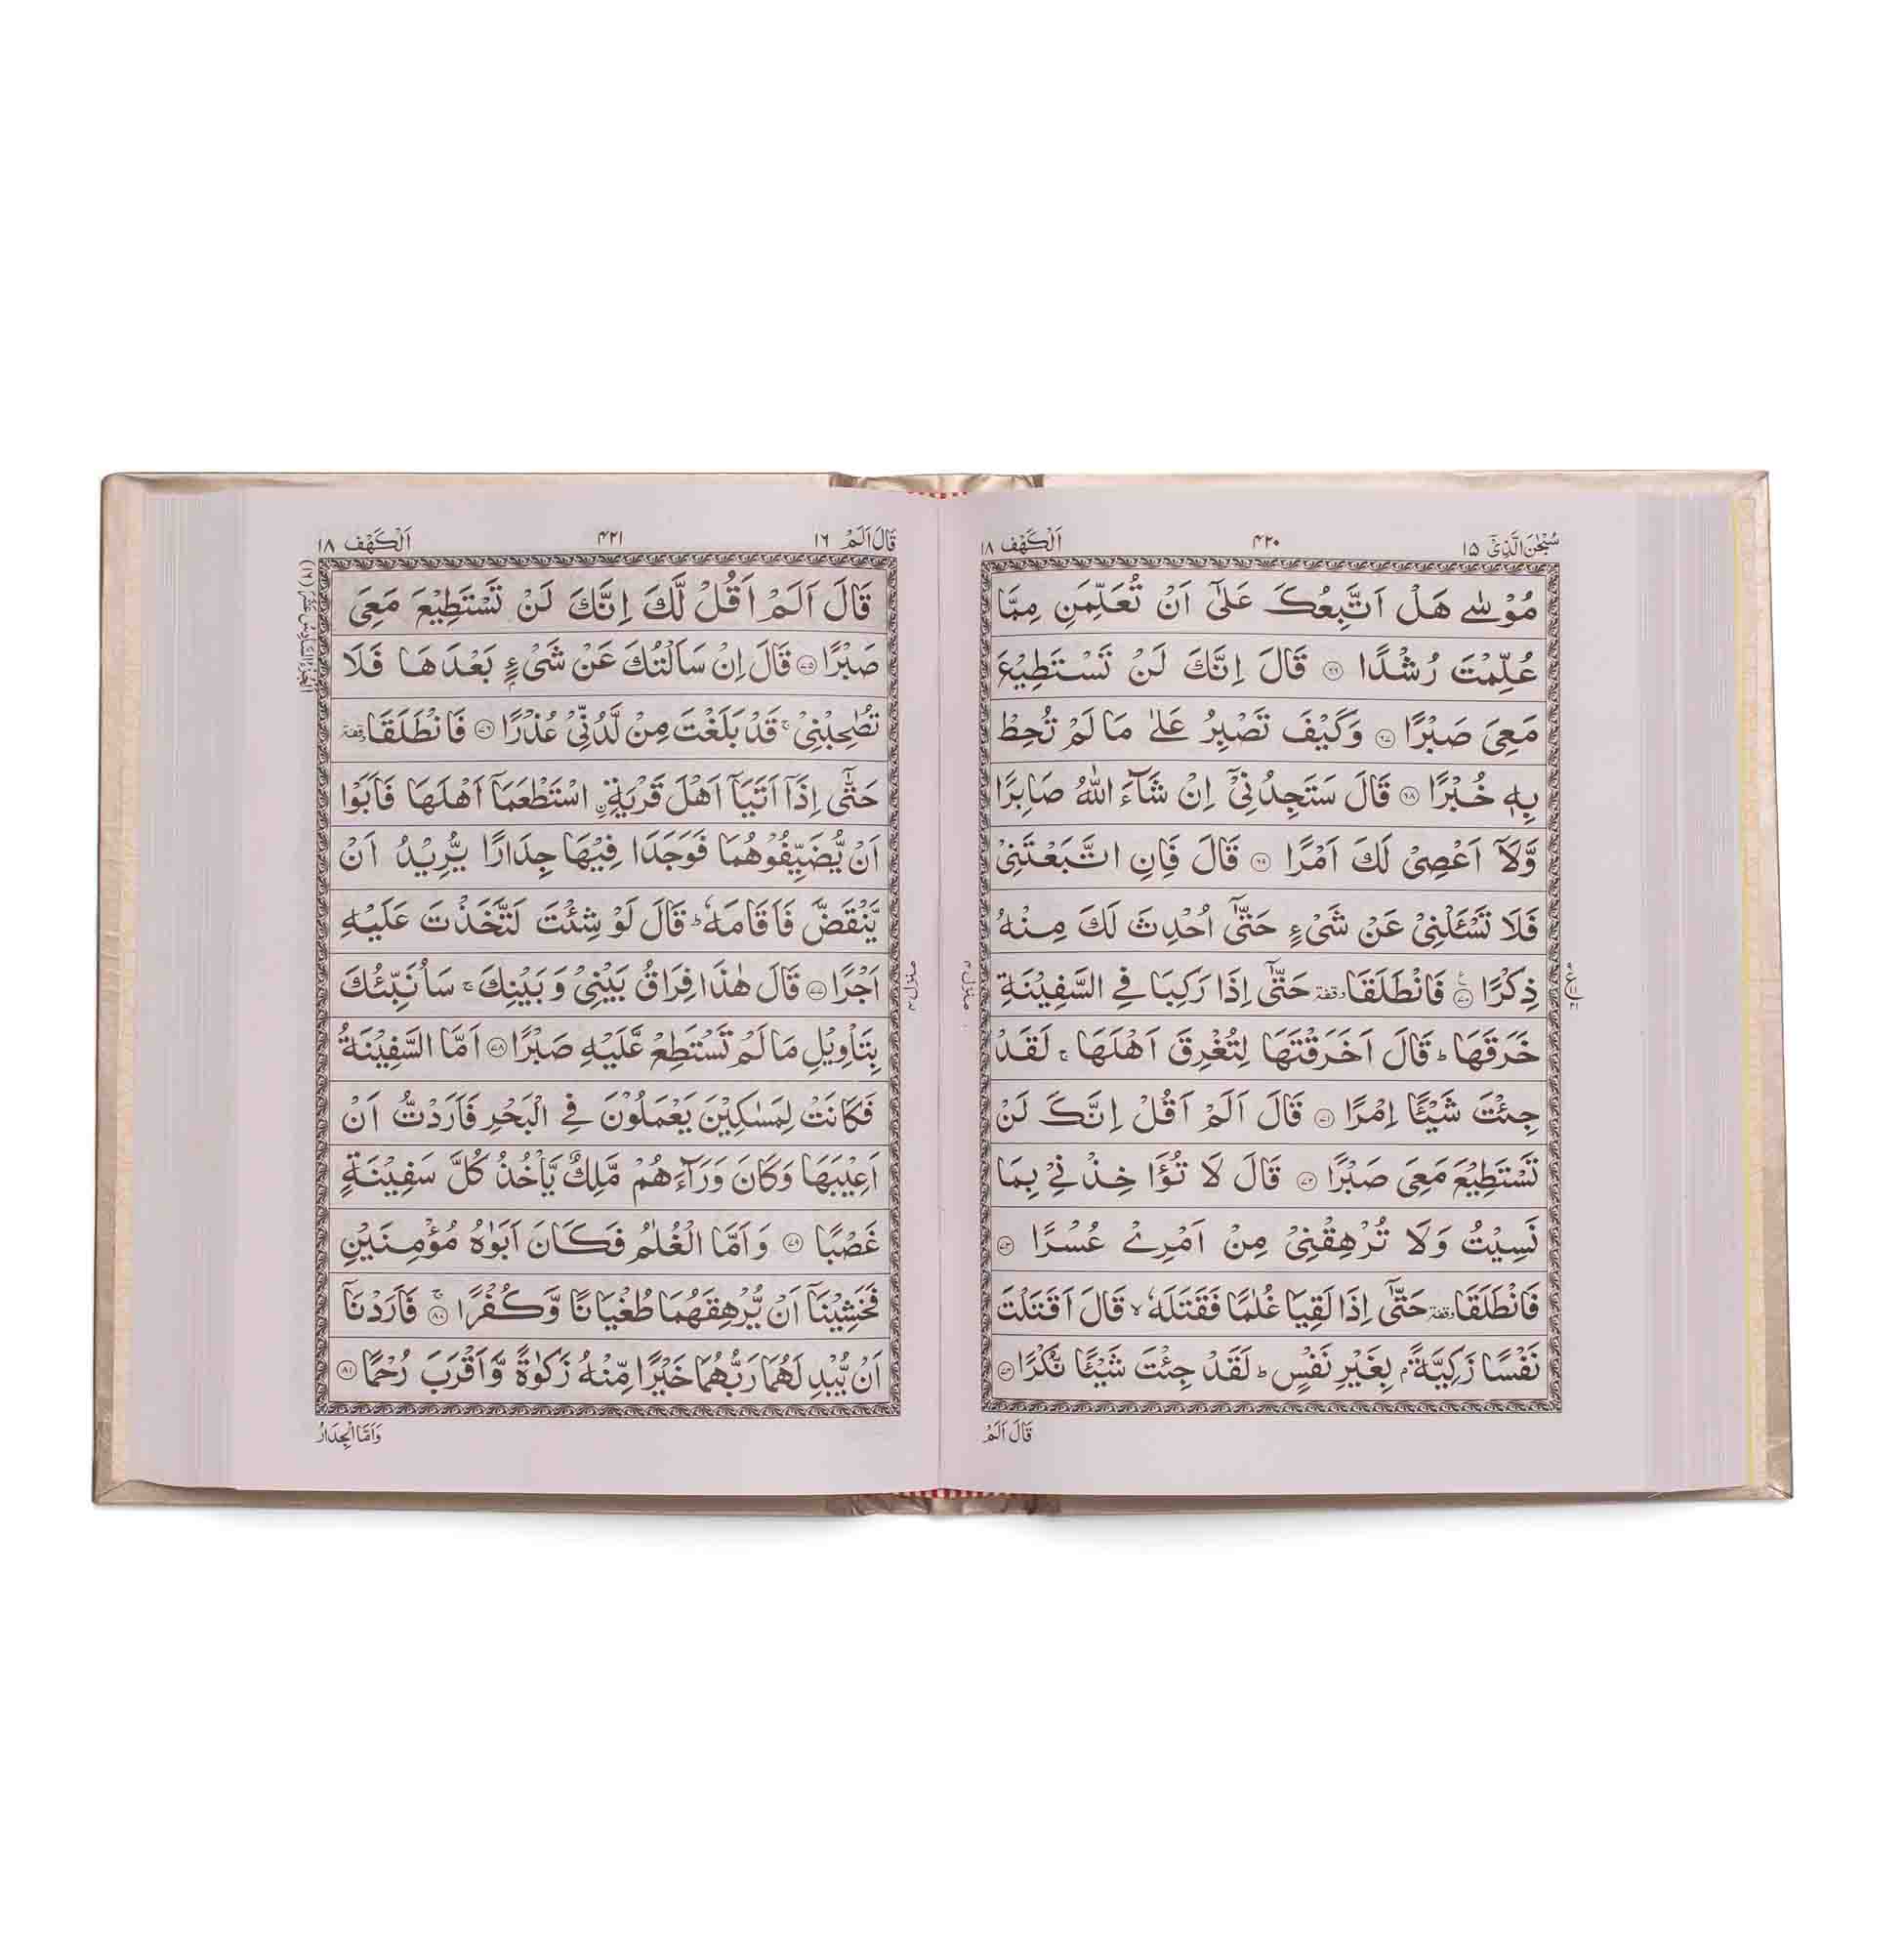 سُبْحٰنَ الَّذِیْۤ ١٥
۴۲۰
اَلْكَهْف ١٨
مُوْسٰى هَلْ اَتَّبِعُكَ عَلٰۤى اَنْ تُعَلِّمَنِ مِمَّا
عُلِّمْتَ رُشْدًا ۝٦٦ قَالَ اِنَّكَ لَنْ تَسْتَطِيْعَ
مَعِيَ صَبْرًا ۝٦٧ وَكَيْفَ تَصْبِرُ عَلٰى مَا لَمْ تُحِطْ
بِهٖ خُبْرًا ۝٦٨ قَالَ سَتَجِدُنِيْۤ اِنْ شَآءَ اللّٰهُ صَابِرًا
وَّلَاۤ اَعْصِيْ لَكَ اَمْرًا ۝٦٩ قَالَ فَاِنِ اتَّبَعْتَنِيْ
فَلَا تَسْـَٔلْنِيْ عَنْ شَيْءٍ حَتّٰۤى اُحْدِثَ لَكَ مِنْهُ
ذِكْرًا ۝٧٠ع فَانْطَلَقَا وقفة حَتّٰۤى اِذَا رَكِبَا فِي السَّفِيْنَةِ
خَرَقَهَا ؕ قَالَ اَخَرَقْتَهَا لِتُغْرِقَ اَهْلَهَا ۚ لَقَدْ
جِئْتَ شَيْـًٔا اِمْرًا ۝٧١ قَالَ اَلَمْ اَقُلْ اِنَّكَ لَنْ
تَسْتَطِيْعَ مَعِيَ صَبْرًا ۝٧٢ قَالَ لَا تُؤَاخِذْنِيْ بِمَا
نَسِيْتُ وَلَا تُرْهِقْنِيْ مِنْ اَمْرِيْ عُسْرًا ۝٧٣
فَانْطَلَقَا وقفة حَتّٰۤى اِذَا لَقِيَا غُلٰمًا فَقَتَلَهٗ ۙ قَالَ اَقَتَلْتَ
نَفْسًا زَكِيَّةًۢ بِغَيْرِ نَفْسٍ ؕ لَقَدْ جِئْتَ شَيْـًٔا نُّكْرًا ۝٧٤
قَالَ اَلَمْ
منزل ۴
قَالَ اَلَمْ ١٦
۴۲۱
اَلْكَهْف ١٨
اَلْجُزْءُ السَّادِسُ عَشَرَ (١٦)
قَالَ اَلَمْ اَقُلْ لَّكَ اِنَّكَ لَنْ تَسْتَطِيْعَ مَعِيَ
صَبْرًا ۝٧٥ قَالَ اِنْ سَاَلْتُكَ عَنْ شَيْءٍۭ بَعْدَهَا فَلَا
تُصٰحِبْنِيْ ۚ قَدْ بَلَغْتَ مِنْ لَّدُنِّيْ عُذْرًا ۝٧٦ فَانْطَلَقَا وقفة
حَتّٰۤى اِذَاۤ اَتَيَاۤ اَهْلَ قَرْيَةِ ِ۟اسْتَطْعَمَاۤ اَهْلَهَا فَاَبَوْا
اَنْ يُّضَيِّفُوْهُمَا فَوَجَدَا فِيْهَا جِدَارًا يُّرِيْدُ اَنْ
يَّنْقَضَّ فَاَقَامَهٗ ؕ قَالَ لَوْ شِئْتَ لَتَّخَذْتَ عَلَيْهِ
اَجْرًا ۝٧٧ قَالَ هٰذَا فِرَاقُ بَيْنِيْ وَبَيْنِكَ ۚ سَاُنَبِّئُكَ
بِتَاْوِيْلِ مَا لَمْ تَسْتَطِعْ عَّلَيْهِ صَبْرًا ۝٧٨ اَمَّا السَّفِيْنَةُ
فَكَانَتْ لِمَسٰكِيْنَ يَعْمَلُوْنَ فِي الْبَحْرِ فَاَرَدْتُّ اَنْ
اَعِيْبَهَا وَكَانَ وَرَآءَهُمْ مَّلِكٌ يَّاْخُذُ كُلَّ سَفِيْنَةٍ
غَصْبًا ۝٧٩ وَاَمَّا الْغُلٰمُ فَكَانَ اَبَوٰهُ مُؤْمِنَيْنِ
فَخَشِيْنَاۤ اَنْ يُّرْهِقَهُمَا طُغْيَانًا وَّكُفْرًا ۝٨٠ۚ فَاَرَدْنَاۤ
اَنْ يُّبْدِلَهُمَا رَبُّهُمَا خَيْرًا مِّنْهُ زَكٰوةً وَّاَقْرَبَ رُحْمًا ۝٨١
وَاَمَّا الْجِدَارُ
منزل ۴